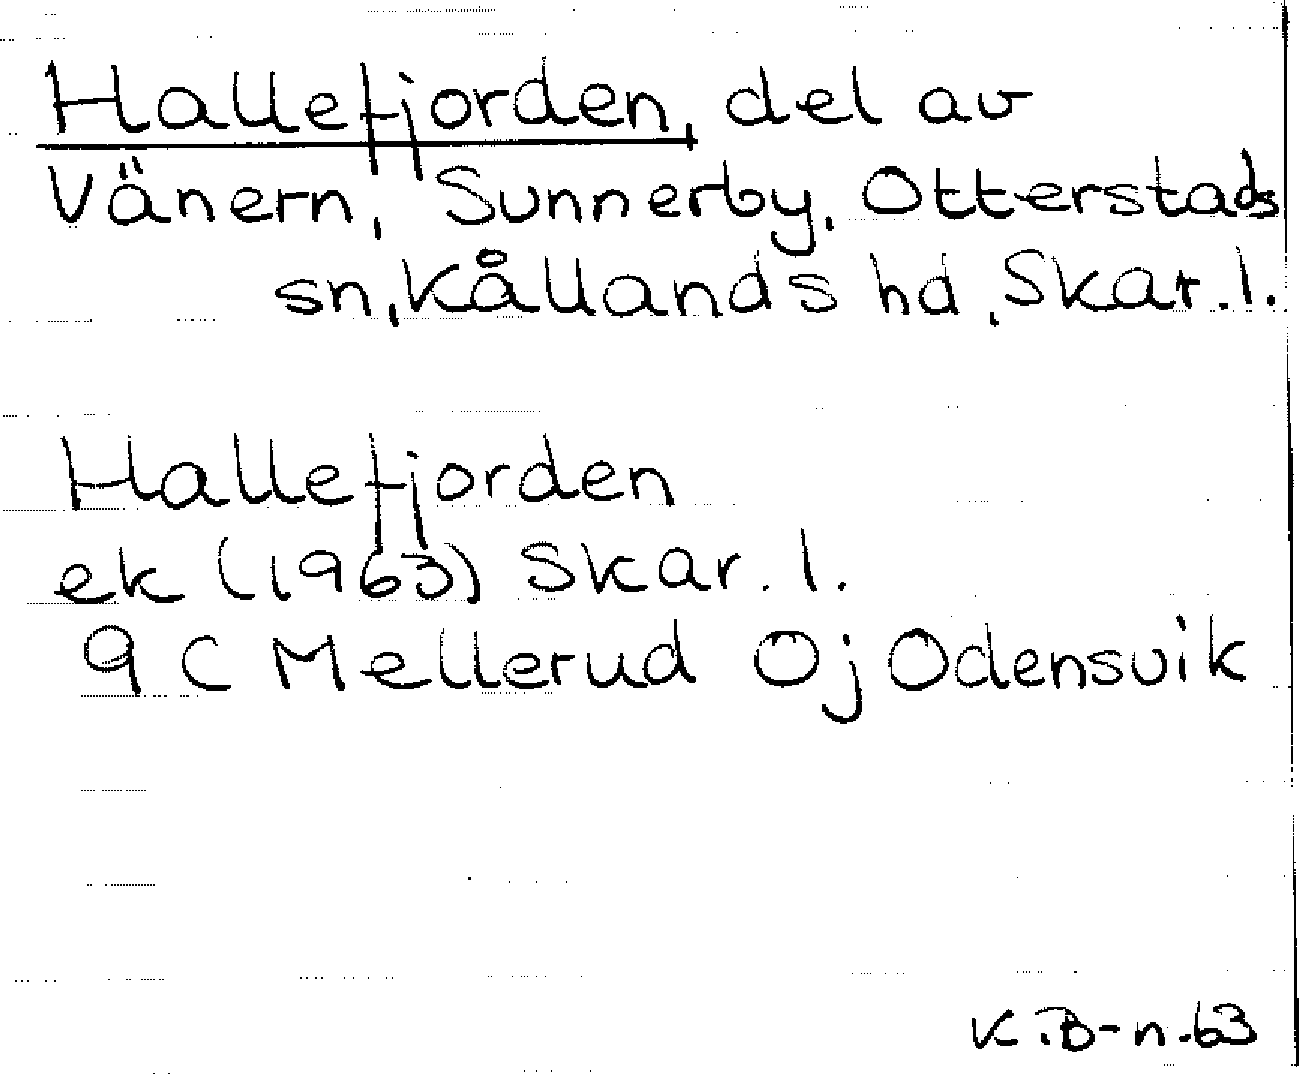 Hallefjorden, del av
Vänern, Sunnerby, Otterstads
sn, Kållands hd, Skar. l.
Hallefjorden
ek (1963) Skar. l.
9 C Mellerud Oj Odensvik
K.B-n.63